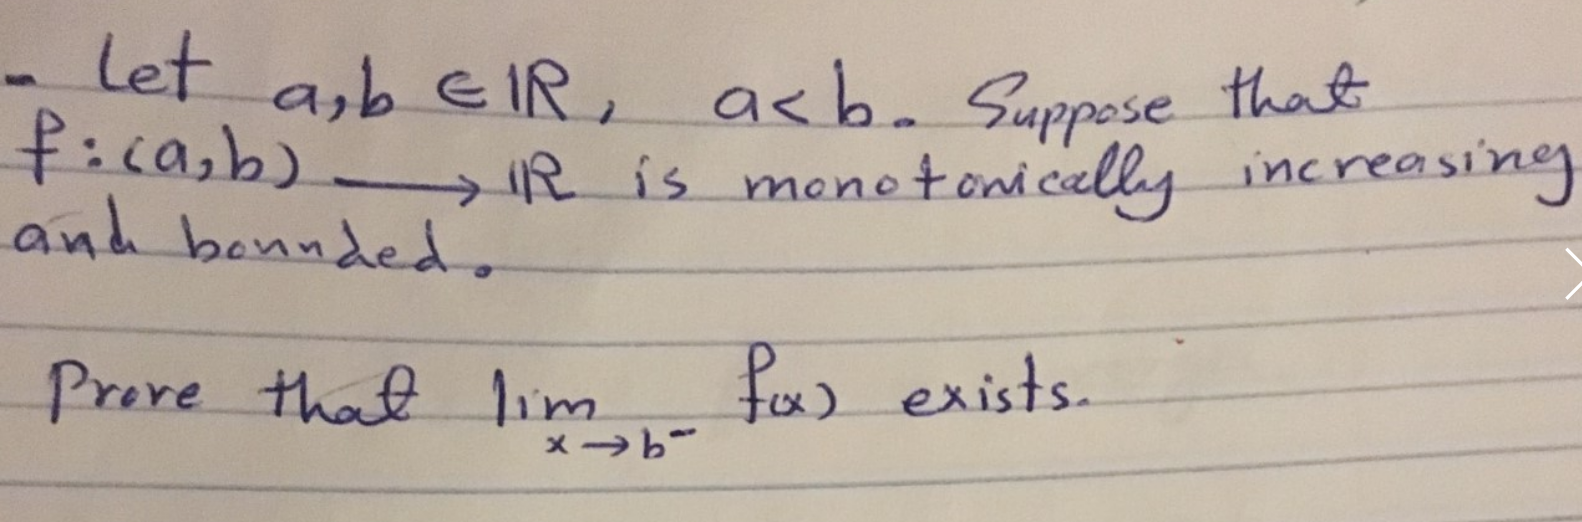 - Let a,b ∈ ℝ, a<b. Suppose that
f:(a,b) ⟶ ℝ is monotonically increasing
and bounded.
Prove that lim f(x) exists.
x→b⁻